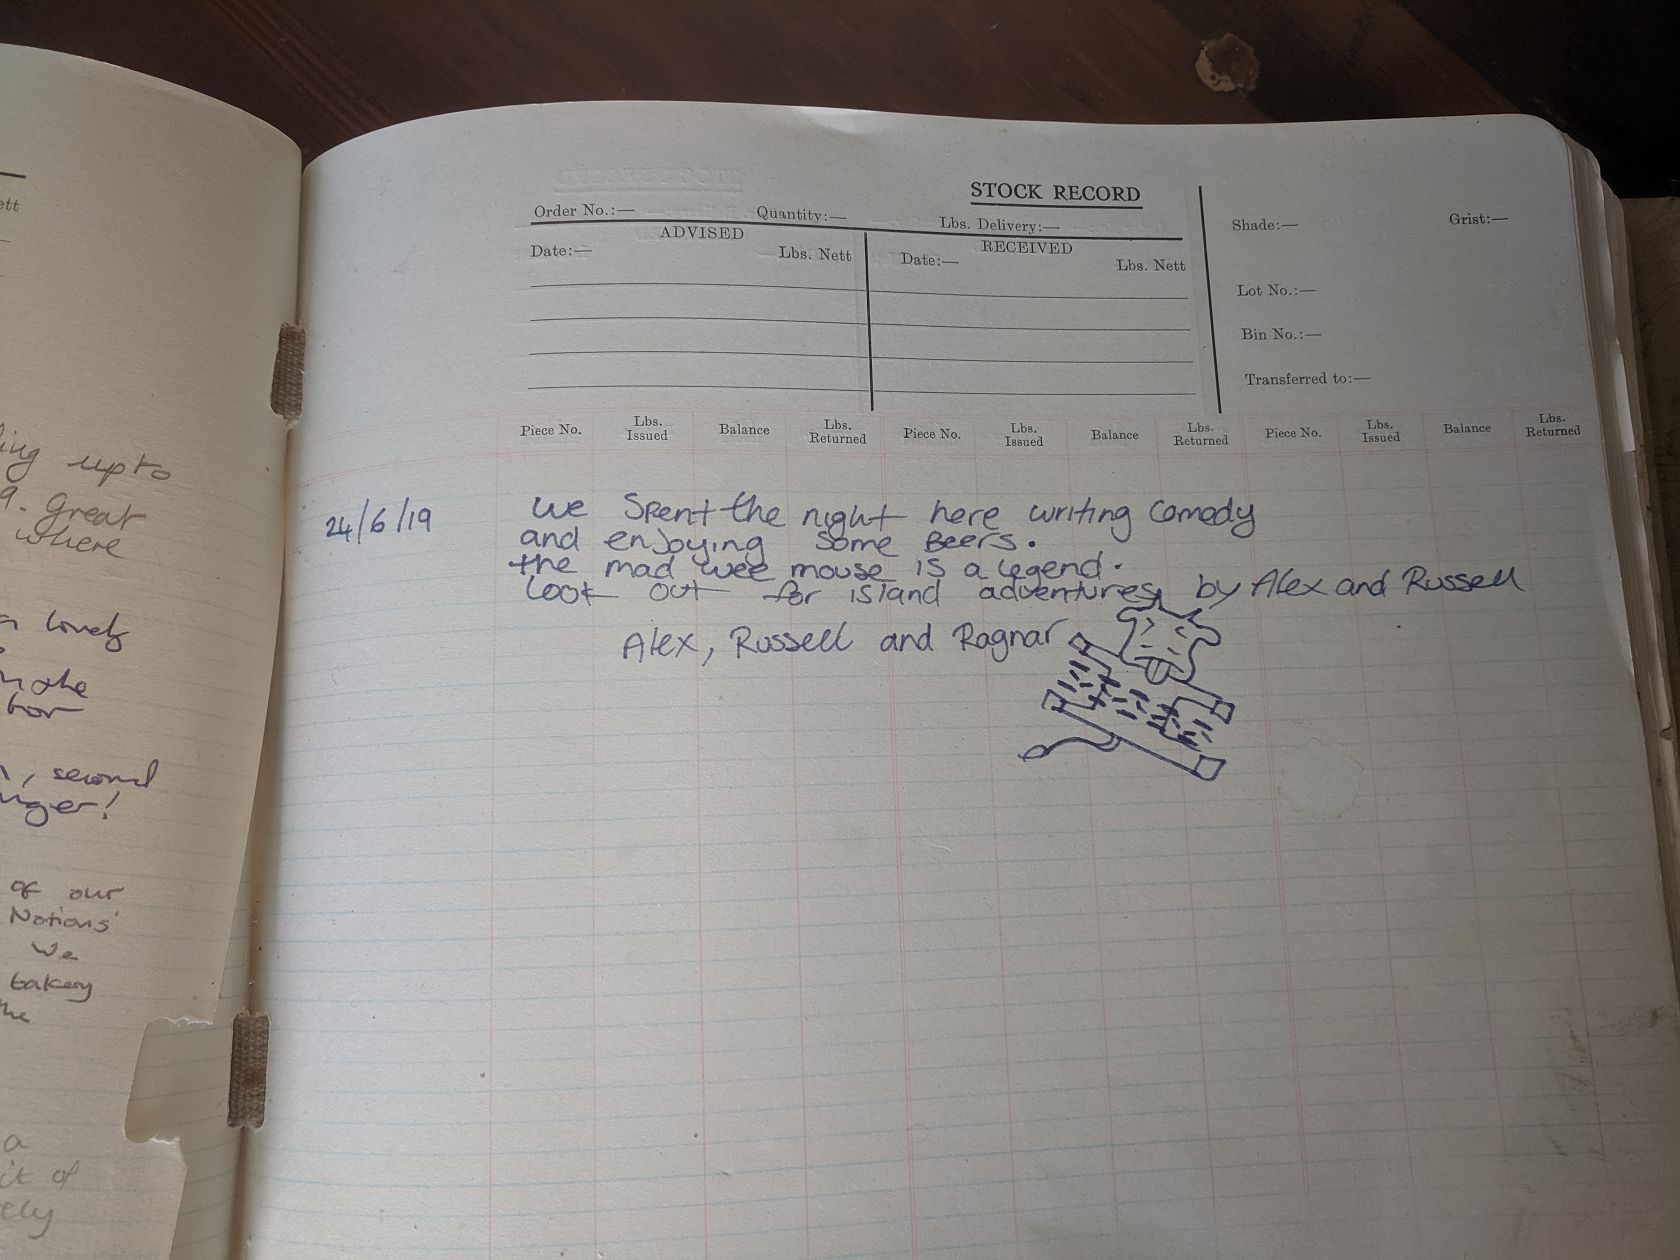 ett
ing upto
9. Great
where
a lovely
in the
bar
, second
nger!
of our
Nations'
we
takeny
the
a
it of
ely
STOCK RECORD
Order No.:— Quantity:— Lbs. Delivery:—
ADVISED
Date:— Lbs. Nett
RECEIVED
Date:— Lbs. Nett
Shade:— Grist:—
Lot No.:—
Bin No.:—
Transferred to:—
Piece No. Lbs. Issued Balance Lbs. Returned Piece No. Lbs. Issued Balance Lbs. Returned Piece No. Lbs. Issued Balance Lbs. Returned
24/6/19 we spent the night here writing comedy
and enjoying some Beers.
the mad wee mouse is a legend.
Look out for island adventures, by Alex and Russell
Alex, Russell and Ragnar